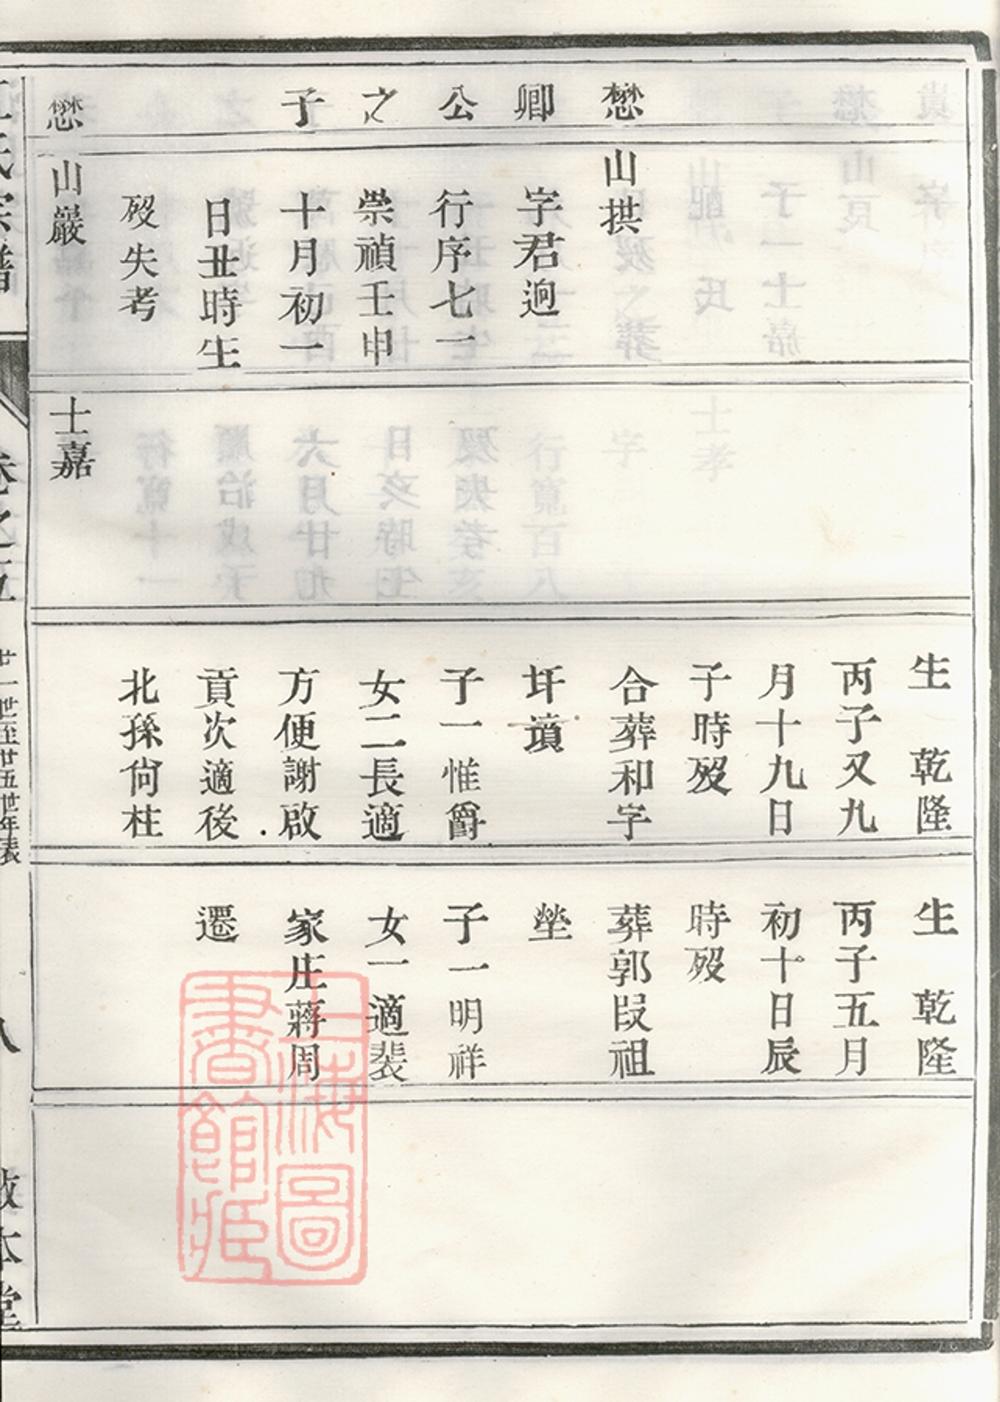 懋卿公之子
懋
山拱
字君逈
行序七一
崇禎壬申
十月初一
日丑時生
歿失考
山巖
士嘉
生 乾隆
丙子又九
月十九日
子時歿
合葬和字
圩墳
子一惟爵
女二長適
方便謝啟
貢次適後
北孫尙柱
生 乾隆
丙子五月
初十日辰
時歿
葬郭段祖
塋
子一明祥
女一適裴
家庄蔣周
遷
氏宗譜
卷之五
廿一世至廿五世年表
八
敘本堂
上海圖書館藏